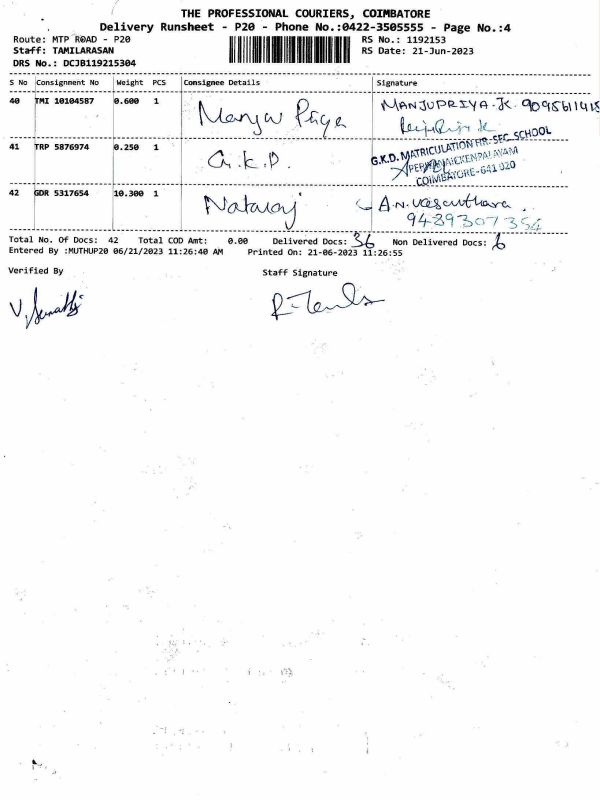 THE PROFESSIONAL COURIERS, COIMBATORE
Delivery Runsheet - P20 - Phone No.:0422-3505555 - Page No.:4
Route: MTP ROAD - P20 RS No.: 1192153
Staff: TAMILARASAN RS Date: 21-Jun-2023
DRS No.: DCJB119215304
S No Consignment No Weight PCS Consignee Details Signature
40 TMI 10104587 0.600 1 Manju Priya MANJUPRIYA.K. 9095611415
41 TRP 5876974 0.250 1 G.K.D. G.K.D. MATRICULATION HR. SEC. SCHOOL
PERIYANAICKENPALAYAM
COIMBATORE-641 020
42 GDR 5317654 10.300 1 Nataraj A.N. Vasanthara.
9489307354
Total No. Of Docs: 42 Total COD Amt: 0.00 Delivered Docs: 36 Non Delivered Docs: 6
Entered By :MUTHUP20 06/21/2023 11:26:40 AM Printed On: 21-06-2023 11:26:55
Verified By Staff Signature